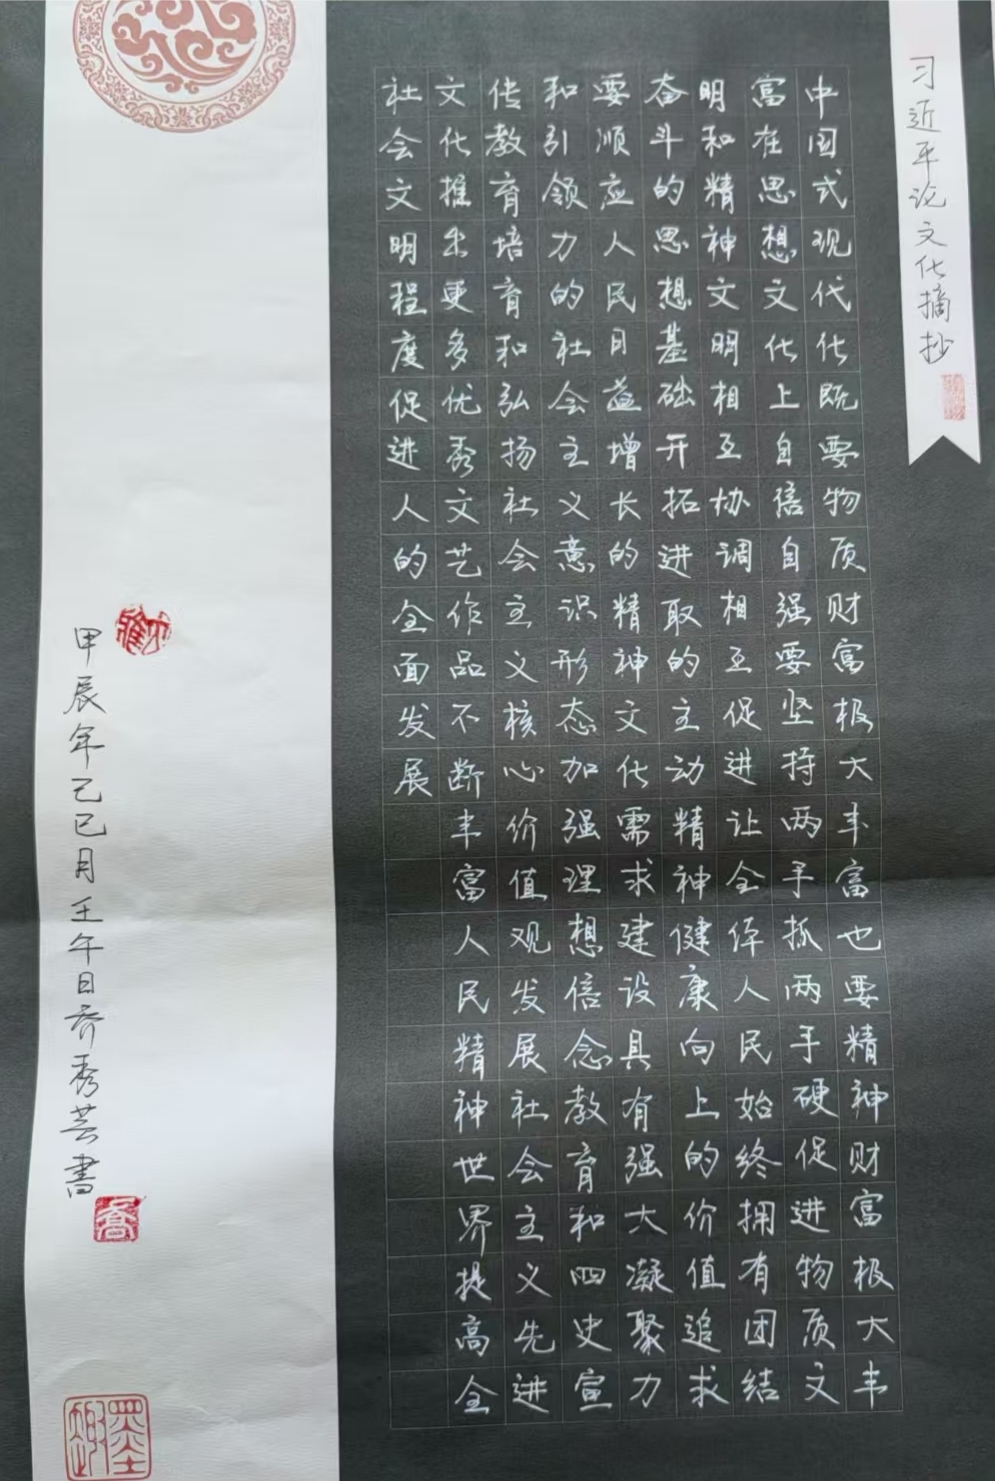 习近平论文化摘抄
中国式现代化既要物质财富极大丰富也要精神财富极大丰
富在思想文化上自信自强要坚持两手抓两手硬促进物质文
明和精神文明相互协调相互促进让全体人民始终拥有团结
奋斗的思想基础开拓进取的主动精神健康向上的价值追求
要顺应人民日益增长的精神文化需求建设具有强大凝聚力
和引领力的社会主义意识形态加强理想信念教育和四史宣
传教育培育和弘扬社会主义核心价值观发展社会主义先进
文化推出更多优秀文艺作品不断丰富人民精神世界提高全
社会文明程度促进人的全面发展
甲辰年己巳月壬午日乔秀芸書
喬
墨趣